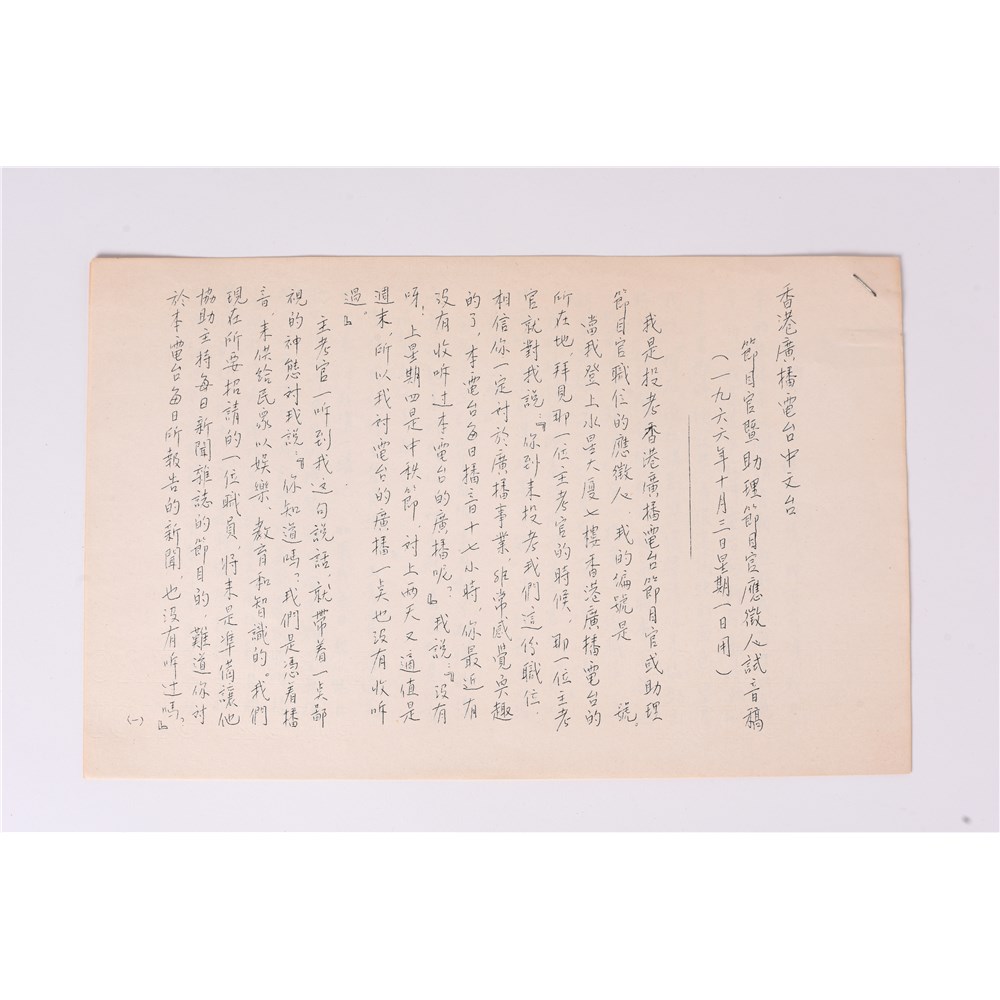 香港廣播電台中文台
節目官暨助理節目官應徵人試音稿
(一九六六年十月三日星期一日用)
我是投考香港廣播電台節目官或助理
節目官職位的應徵人,我的编號是 號。
當我登上水星大廈七樓香港廣播電台的
所在地,拜見那一位主考官的時候,那一位主考
官就對我說:『你到来投考我們這份職位,
相信你一定对於廣播事業,非常感覺興趣
的了,本電台每日播音十七小時,你最近有
没有收听过本電台的廣播呢?』我說:『没有
呀!上星期四是中秋節,对上两天又適值是
週末,所以我对電台的廣播一点也没有收听
過。』
主考官一听到我这句說話,就带着一点鄙
視的神態对我說:『你知道嗎?我們是憑着播
音,来供給民眾以娛樂、教育和智識的。我們
現在所要招請的一位職員,將来是準備讓他
協助主持每日新聞雜誌的節目的,難道你对
於本電台每日所報告的新聞,也没有听过嗎?』
(一)